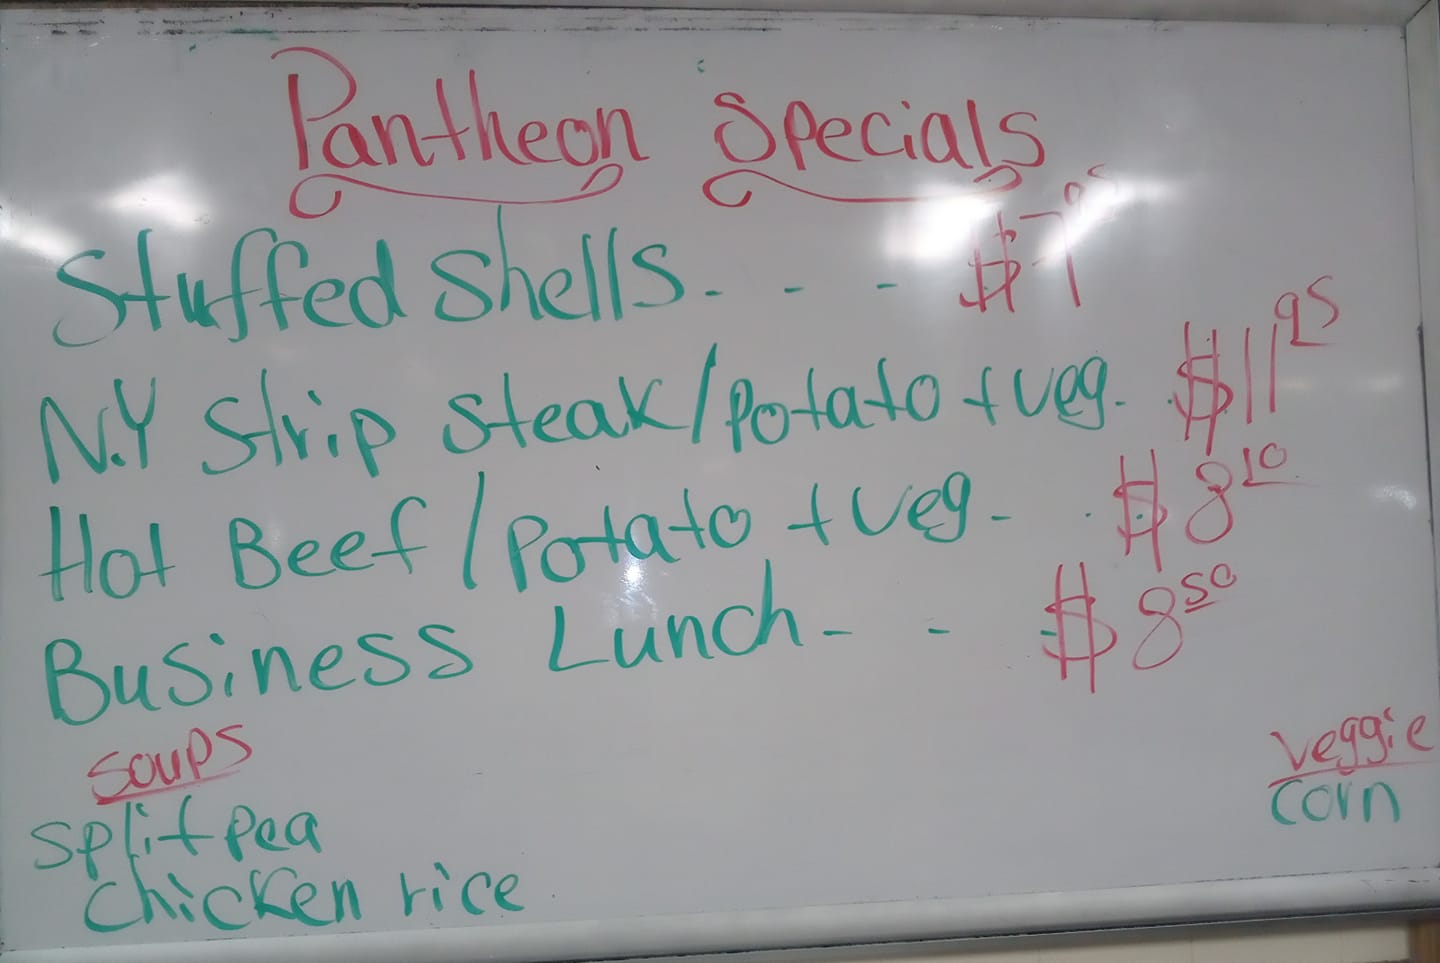 Pantheon Specials
Stuffed Shells. - - - $7 95
N.Y Strip Steak/Potato + Veg. - . $11 95
Hot Beef/Potato + Veg - . $8 10
Business Lunch - - - $8 50
Soups
Split Pea
Chicken rice
Veggie
Corn